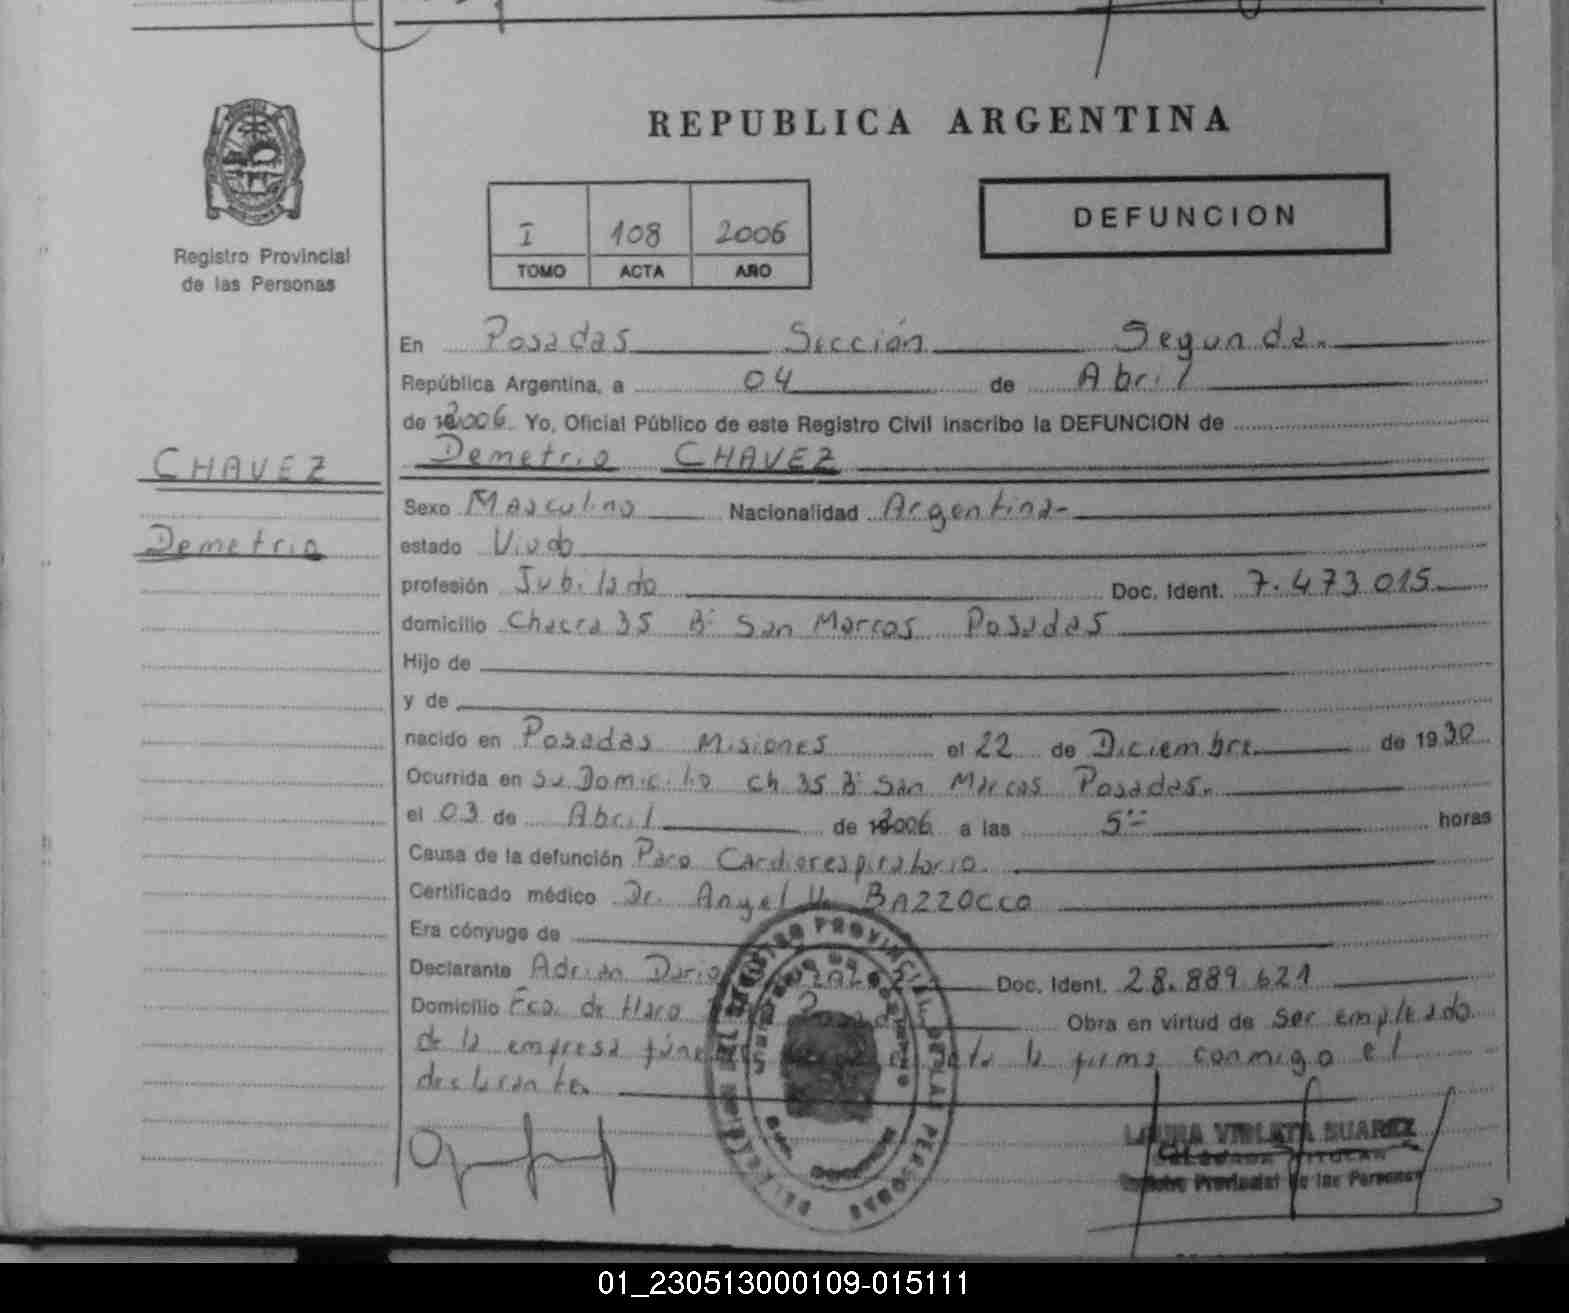 REPUBLICA ARGENTINA
I 108 2006
TOMO ACTA AÑO
DEFUNCION
Registro Provincial
de las Personas
CHAVEZ
Demetrio
En Posadas Sección Segunda.
República Argentina, a 04 de Abril
de 2006. Yo, Oficial Público de este Registro Civil inscribo la DEFUNCION de
Demetrio CHAVEZ
Sexo Masculino Nacionalidad Argentina-
estado Viudo
profesión Jubilado Doc. Ident. 7.473.015
domicilio Chacra 35 B° San Marcos Posadas
Hijo de
y de
nacido en Posadas Misiones el 22 de Diciembre de 1930
Ocurrida en Su Domicilio Ch 35 B° San Marcos Posadas.
el 03 de Abril de 2006 a las 5 horas
Causa de la defunción Paro Cardiorespiratorio.
Certificado médico Dr. Angel BAZZOCCO
Era cónyuge de
Declarante Adrian Dario Doc. Ident. 28.889.621
Domicilio Fco. de Haro Obra en virtud de ser empleado
de la empresa la firma conmigo el
declarante.
LAURA VIOLETA SUAREZ
DELEGADA TITULAR
Registro Provincial de las Personas
01_230513000109-015111